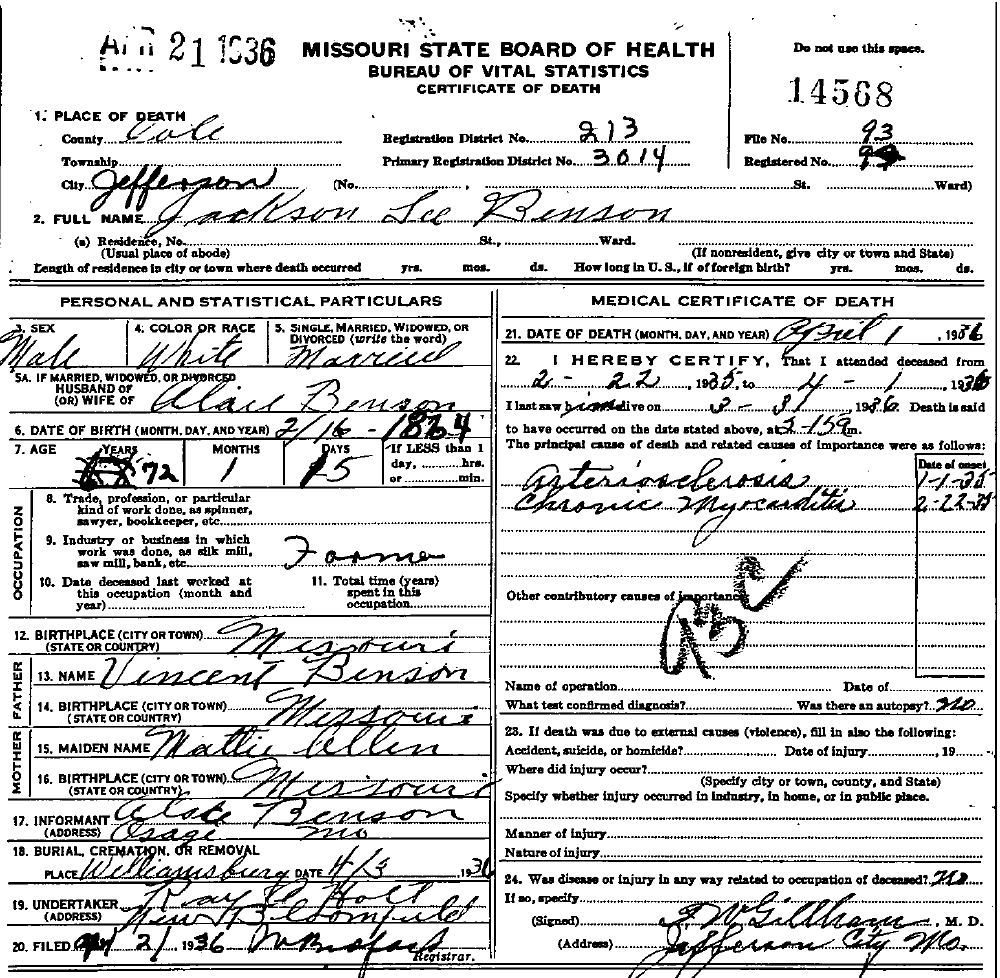 APR 21 1936
MISSOURI STATE BOARD OF HEALTH
BUREAU OF VITAL STATISTICS
CERTIFICATE OF DEATH
Do not use this space.
14568
1. PLACE OF DEATH
County Cole Registration District No. 213 File No. 93
Township Primary Registration District No. 3014 Registered No.
City Jefferson (No. , St. Ward)
2. FULL NAME Jackson Lee Benson
(a) Residence, No. St., Ward.
(Usual place of abode) (If nonresident, give city or town and State)
Length of residence in city or town where death occurred yrs. mos. ds. How long in U. S., if of foreign birth? yrs. mos. ds.
PERSONAL AND STATISTICAL PARTICULARS
3. SEX 4. COLOR OR RACE 5. SINGLE, MARRIED, WIDOWED, OR DIVORCED (write the word)
Male White Married
5A. IF MARRIED, WIDOWED, OR DIVORCED
HUSBAND OF
(OR) WIFE OF Benson
6. DATE OF BIRTH (MONTH, DAY, AND YEAR) 2/16 - 1864
7. AGE YEARS MONTHS DAYS If LESS than 1
day, hrs.
or min.
72 1 15
OCCUPATION
8. Trade, profession, or particular
kind of work done, as spinner,
sawyer, bookkeeper, etc.
9. Industry or business in which
work was done, as silk mill,
saw mill, bank, etc. Farmer
10. Date deceased last worked at
this occupation (month and
year)
11. Total time (years)
spent in this
occupation
12. BIRTHPLACE (CITY OR TOWN)
(STATE OR COUNTRY) Missouri
FATHER
13. NAME Vincent Benson
14. BIRTHPLACE (CITY OR TOWN)
(STATE OR COUNTRY) Missouri
MOTHER
15. MAIDEN NAME Mattie Allen
16. BIRTHPLACE (CITY OR TOWN)
(STATE OR COUNTRY) Missouri
17. INFORMANT Benson
(ADDRESS) Osage Mo
18. BURIAL, CREMATION, OR REMOVAL
PLACE Williamsburg DATE 4/3 1936
19. UNDERTAKER Ray Holt
(ADDRESS) New Bloomfield
20. FILED Apr 21 1936
Registrar.
MEDICAL CERTIFICATE OF DEATH
21. DATE OF DEATH (MONTH, DAY, AND YEAR) April 1, 1936
22. I HEREBY CERTIFY, That I attended deceased from
2 - 22, 1935, to 4 - 1, 1936
I last saw him alive on 3 - 31 1936. Death is said
to have occurred on the date stated above, at m.
The principal cause of death and related causes of importance were as follows:
Date of onset
Arteriosclerosis 1-1-35
Chronic Myocarditis 2-22-35
Other contributory causes of importance:
Name of operation Date of
What test confirmed diagnosis? Was there an autopsy? No
23. If death was due to external causes (violence), fill in also the following:
Accident, suicide, or homicide? Date of injury , 19
Where did injury occur?
(Specify city or town, county, and State)
Specify whether injury occurred in industry, in home, or in public place.
Manner of injury
Nature of injury
24. Was disease or injury in any way related to occupation of deceased? No
If so, specify
(Signed) Gillham, M. D.
(Address) Jefferson City Mo.